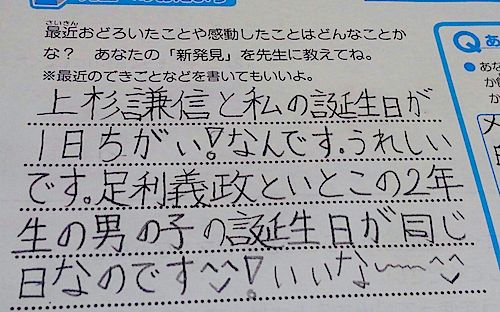 さいきん
最近おどろいたことや感動したことはどんなことか
な？　あなたの「新発見」を先生に教えてね。
※最近のできごとなどを書いてもいいよ。
上杉謙信と私の誕生日が
1日ちがい!なんです。うれしい
です。足利義政といとこの2年
生の男の子の誕生日が同じ
日なのです^^!いいな〜^^
Q あ
●あな